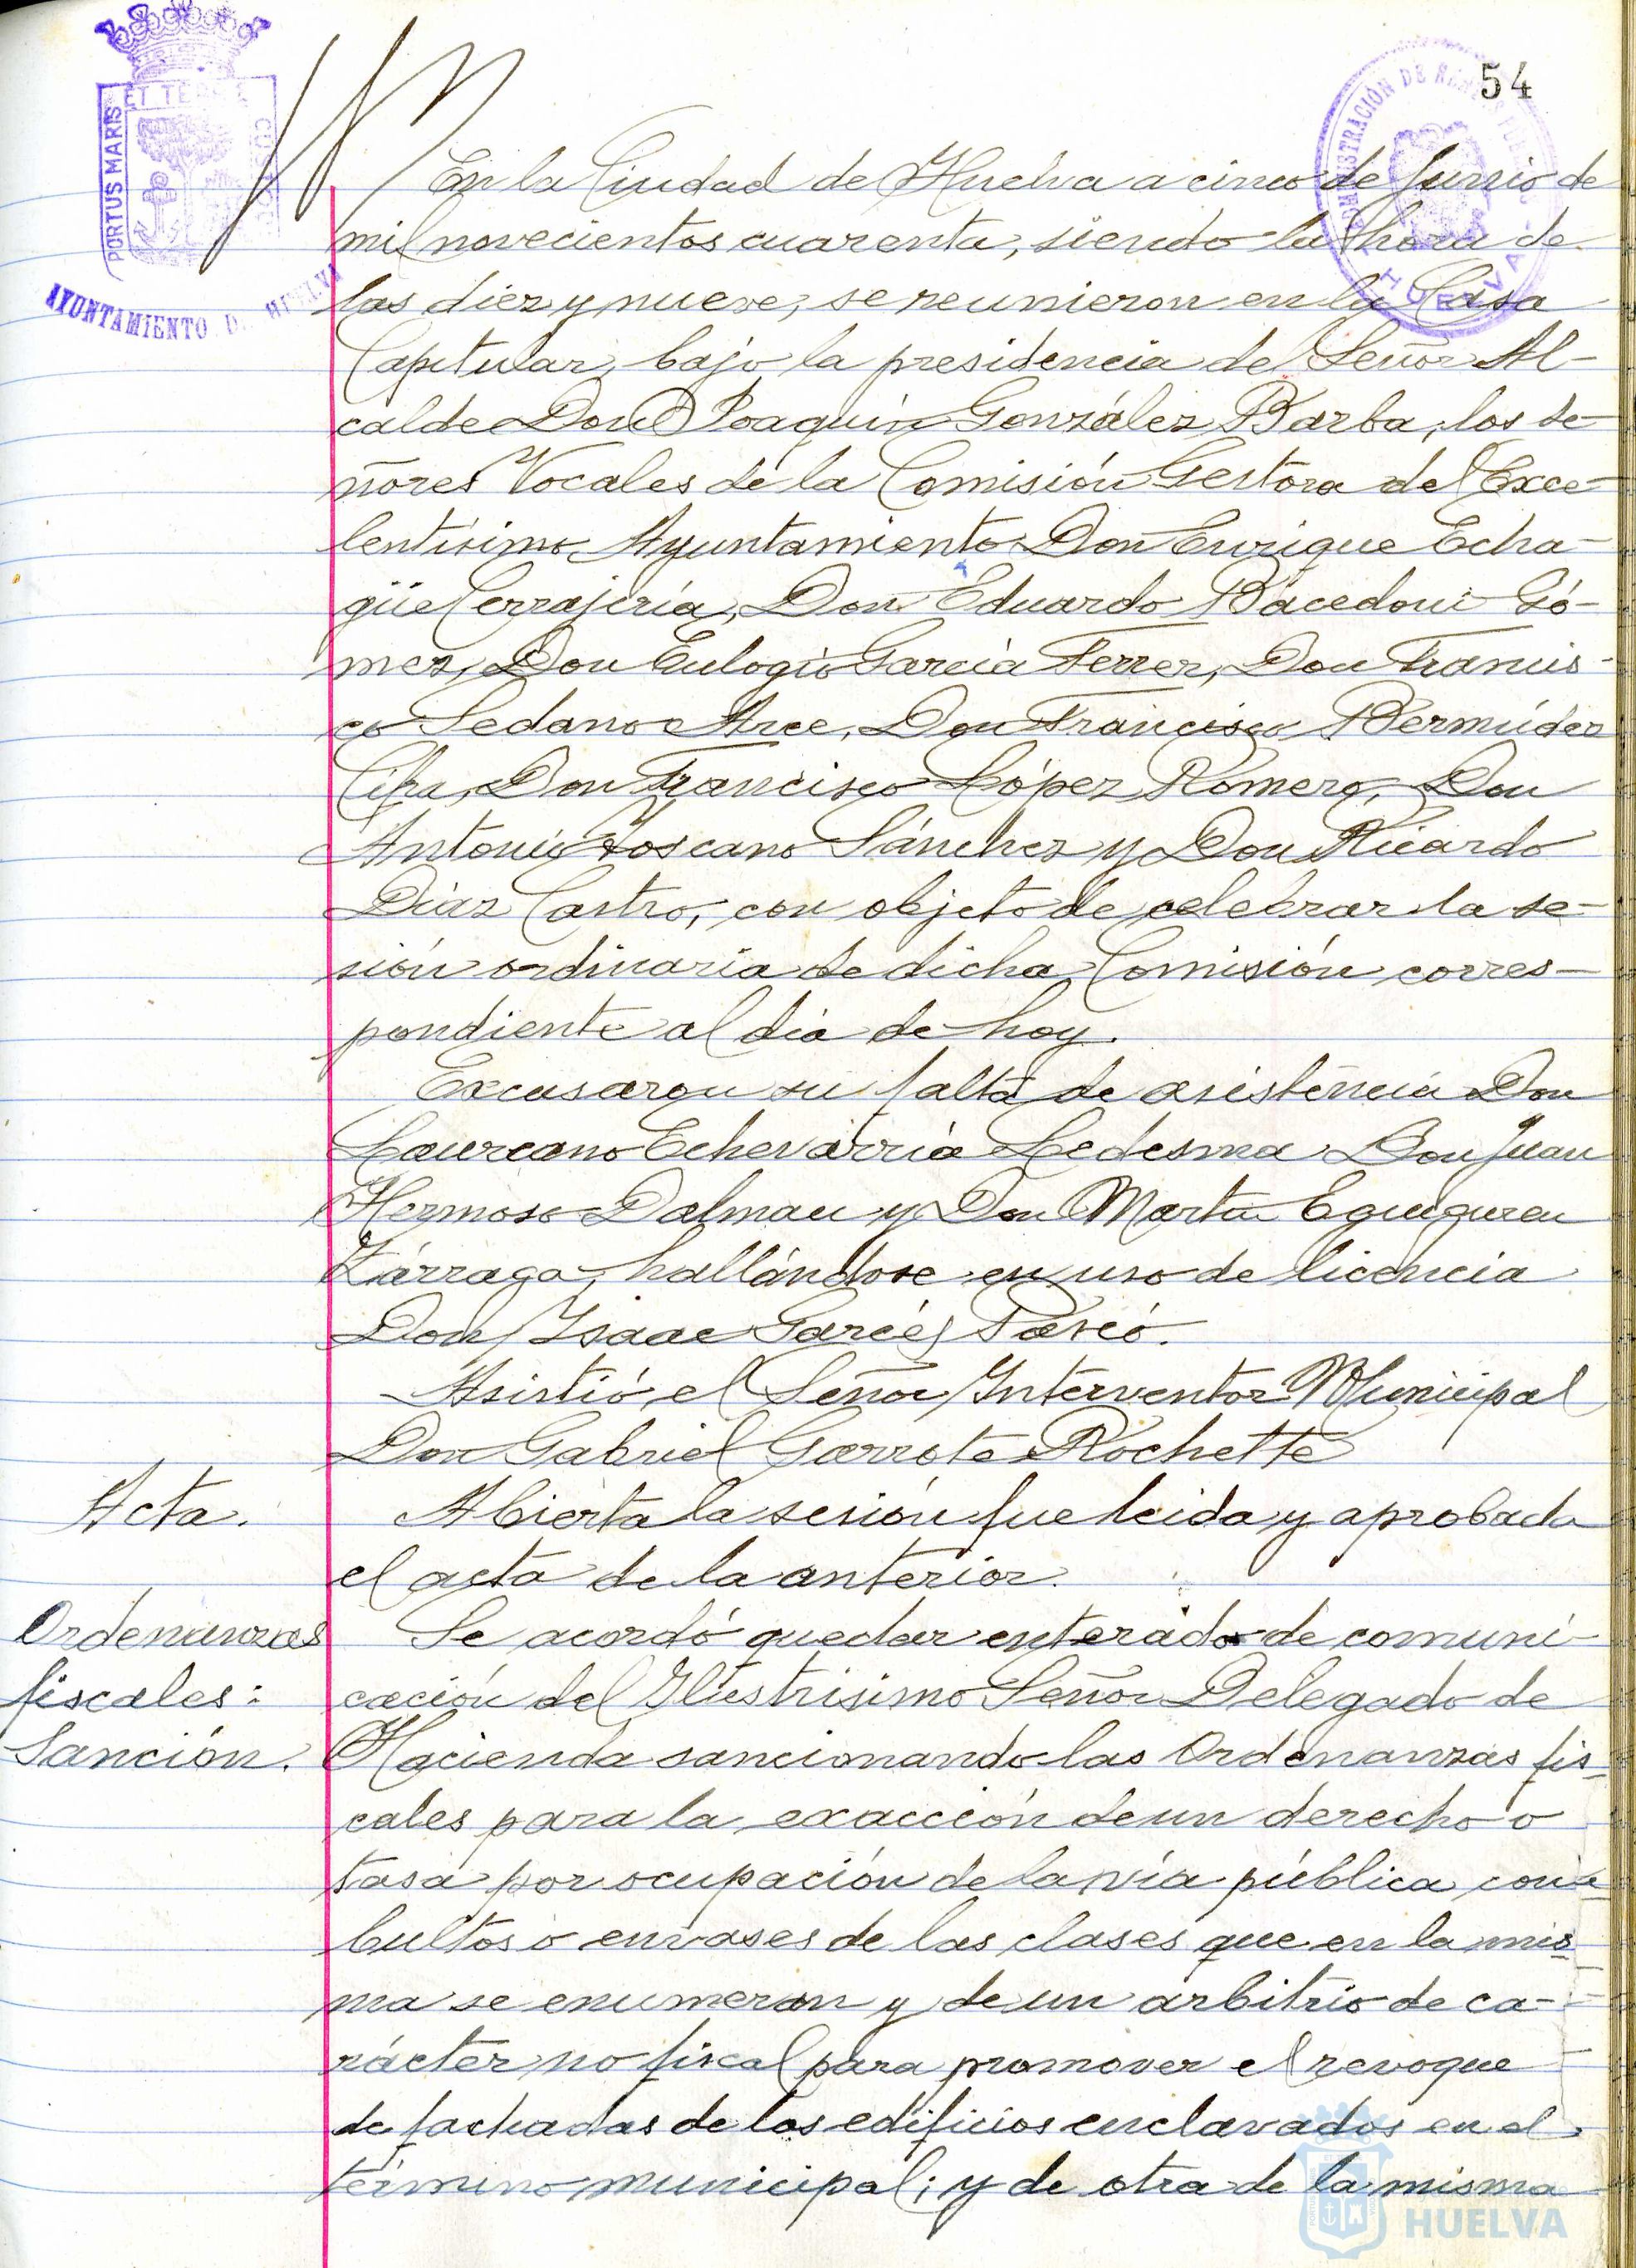 54
PORTUS MARIS
ET TERRE
AYUNTAMIENTO DE HUELVA
HUELVA
En la Ciudad de Huelva a cinco de Junio de
mil novecientos cuarenta, siendo la hora de
las diez y nueve, se reunieron en la Casa
Capitular, bajo la presidencia del Señor Al-
calde Don Joaquín González Barba, los se-
ñores Vocales de la Comisión Gestora del Exce-
lentísimo Ayuntamiento Don Enrique Echa-
güe Cerrajería, Don Eduardo Bacedoni Gó-
mez, Don Eulogio García Ferrer, Don Francis-
co Sedano Arce, Don Francisco Bermúdez
Don Francisco López Romero, Don
Antonio Toscano Sánchez y Don Ricardo
Díaz Castro, con objeto de celebrar la se-
sión ordinaria de dicha Comisión corres-
pondiente al día de hoy.
Excusaron su falta de asistencia Don
Laureano Echevarría Ledesma Don Juan
Hermoso Dalmau y Don Martín Eguiguren
Zárraga, hallándose en uso de licencia
Don Isaac Garcés
Asistió el Señor Interventor Municipal
Don Gabriel Garrote Rochette
Acta.
Abierta la sesión fue leida y aprobada
el acta de la anterior.
Ordenanzas
fiscales:
Sanción.
Se acordó quedar enterado de comuni-
cación del Ilustrisimo Señor Delegado de
Hacienda sancionando las Ordenanzas fis-
cales para la exacción de un derecho o
tasa por ocupación de la vía pública con
bultos o envases de las clases que en la mis-
ma se enumeran y de un arbitrio de ca-
rácter no fiscal para promover el revoque
de fachadas de los edificios enclavados en el
término municipal; y de otra de la misma
HUELVA